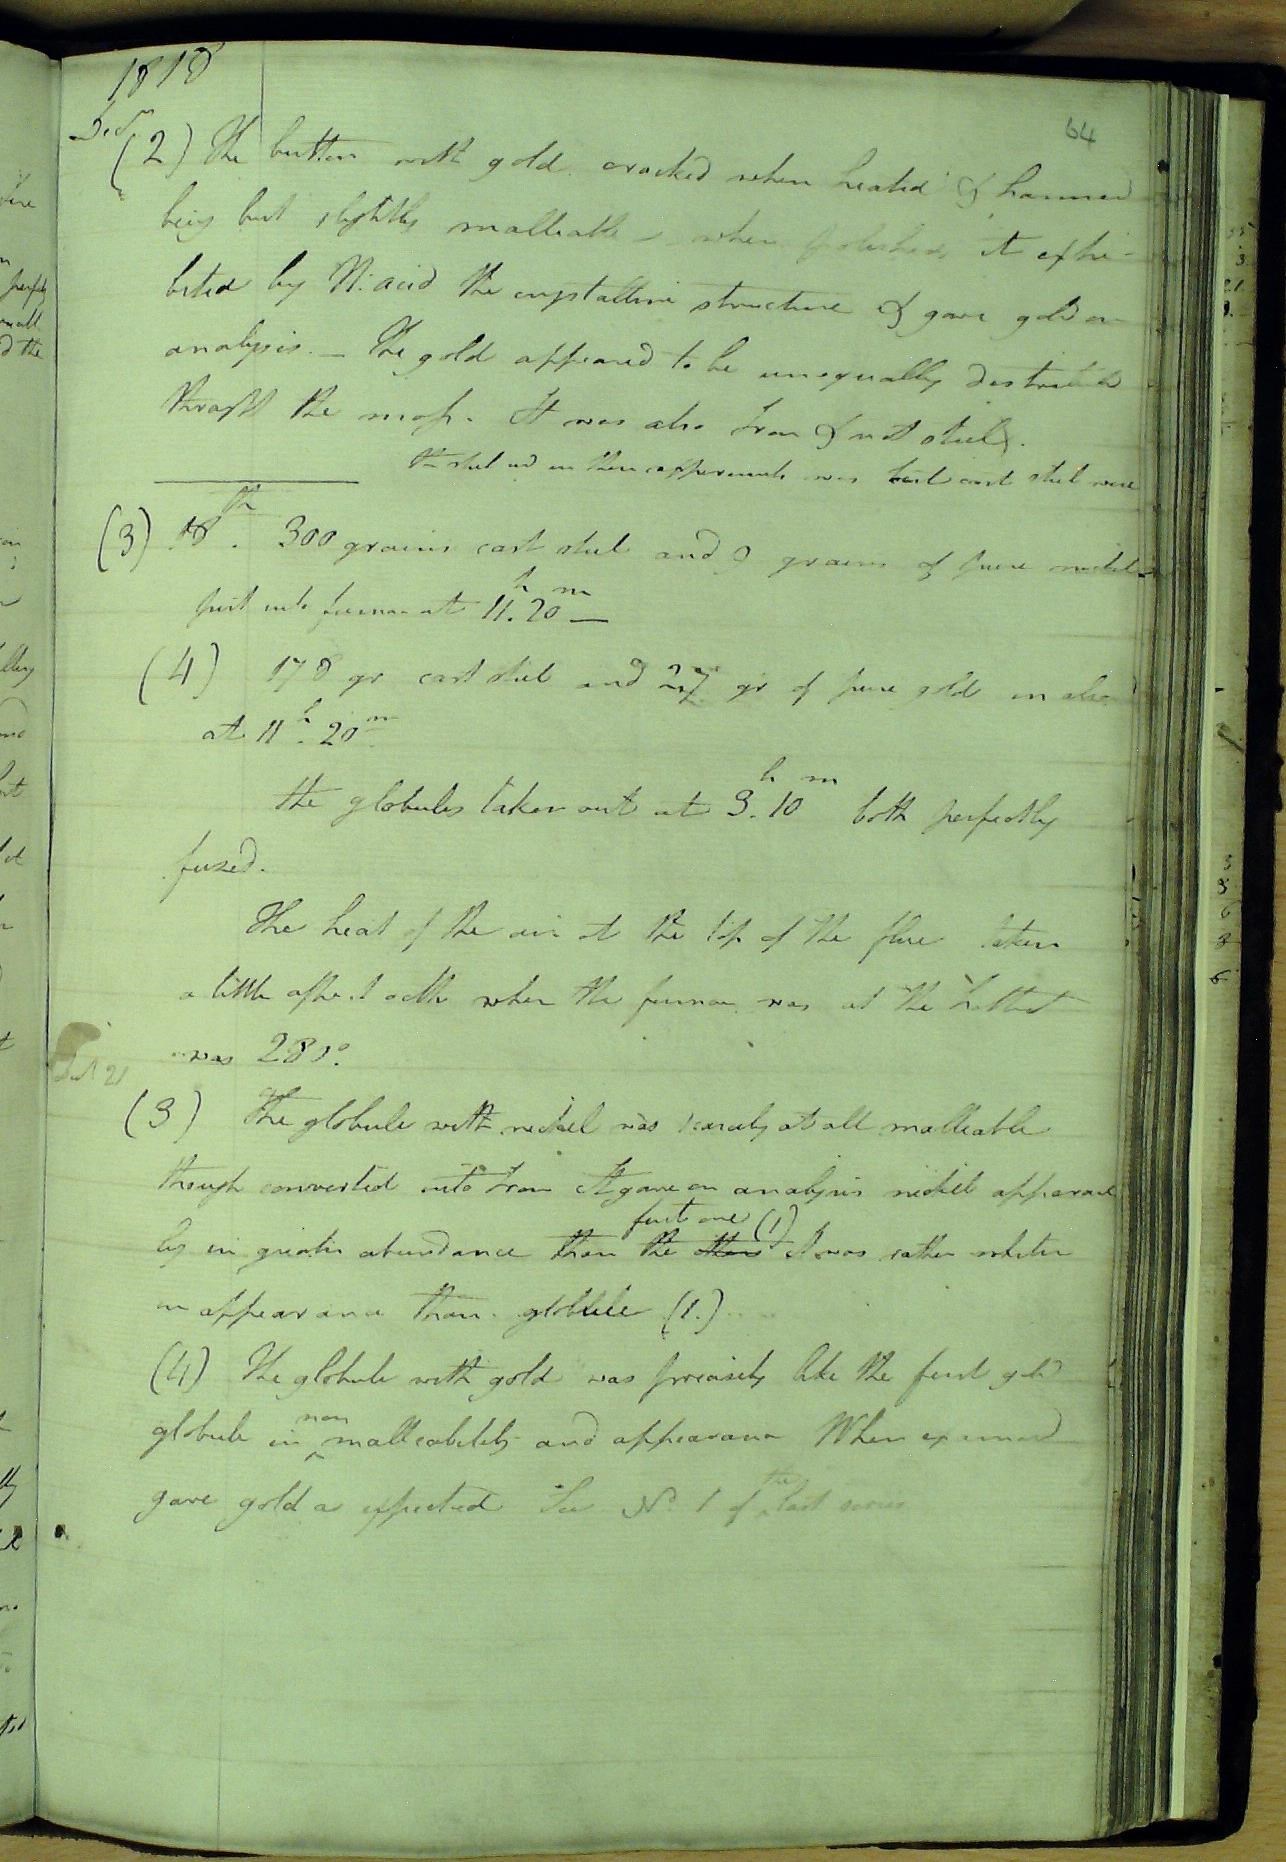 1818
Decr
64
(2) The button with gold cracked when heated & hammer
being but slightly malleable - when polished it exhi-
bited by N. acid the crystalline structure & gave gold on
analysis. - The gold appeared to be unequally distributed
through the mass. It was also Iron & not steel.
The steel used in these experiments was best cast steel wire
(3) 18th. 300 grains cast steel and 9 grains of pure nickel
put into furnace at 11h.20m -
(4) 178 gr cast steel and gr of pure gold in also
at 11h.20m
the globules taken out at 3h.10m both perfectly
fused.
The heat of the air at the top of the flue taken
a little after 1 oclk when the furnace was at the hottest
was 280°.
21
(3) The globule with nickel was scarcely at all malleable
though converted into Iron It gave on analysis nickel apparent
ly in greater abundance than the others first one (1) it was rather whiter
in appearance than globule (1.)
(4) The globule with gold was precisely like the first gold
globule in non malleability and appearance When examined
gave gold as expected See No. 1 of the last series